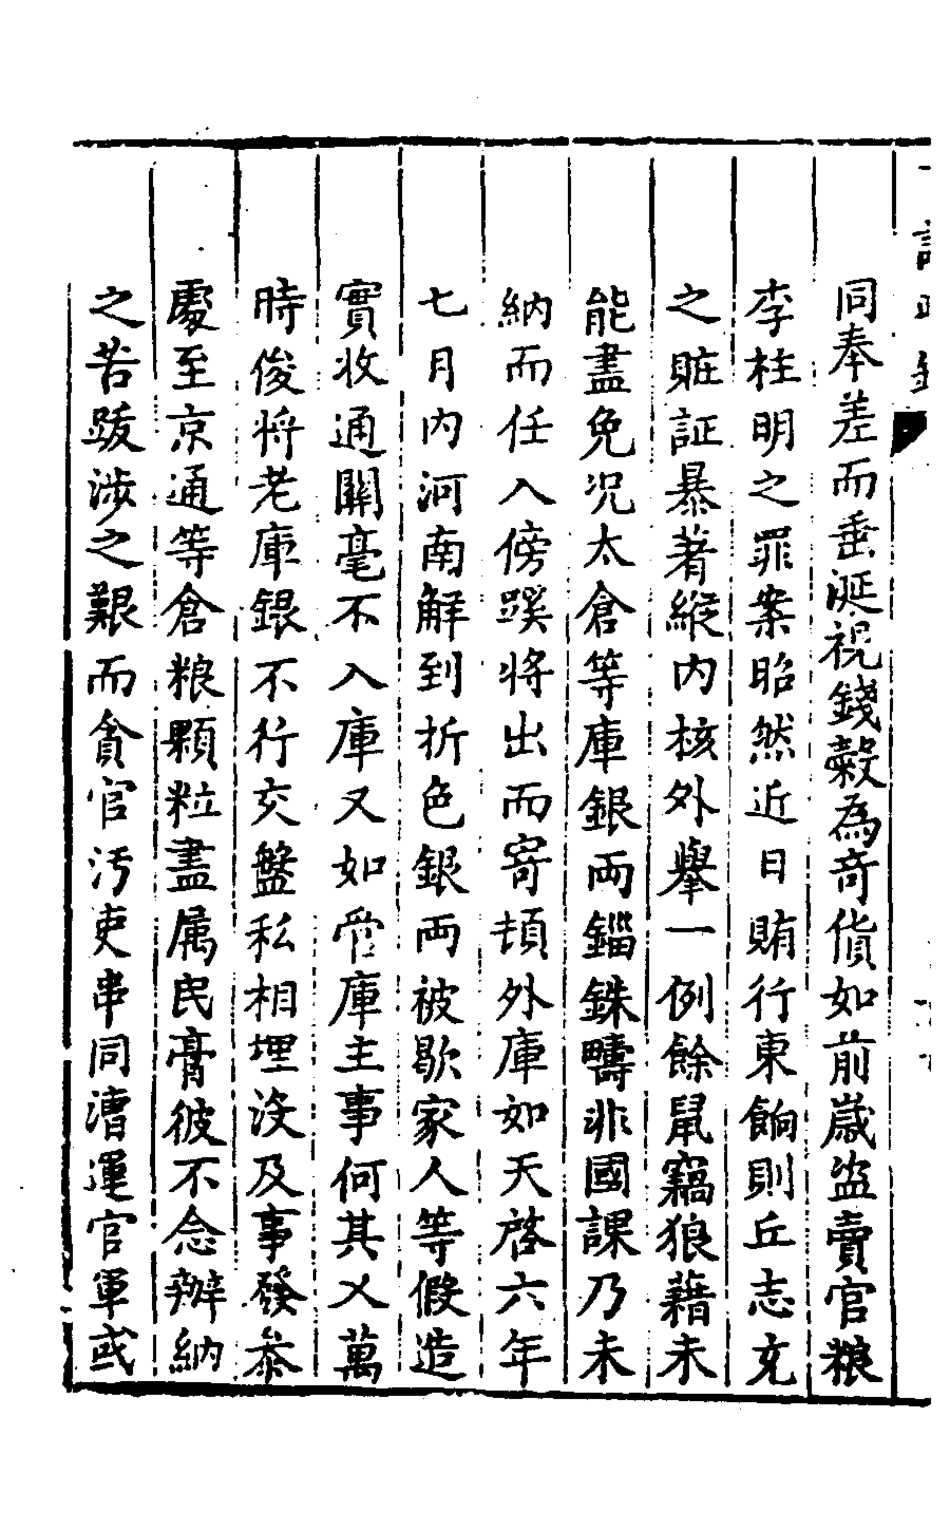 同奉差而垂涎視錢穀為奇貨如前歲盜賣官粮
李柱明之罪案昭然近日賄行東餉則丘志充
之賍証暴著縱內核外舉一例餘鼠竊狼藉未
能盡免况太倉等庫銀両錙銖疇非國課乃未
納而任入傍蹊将出而寄頓外庫如天啓六年
七月內河南解到折色銀両被歇家人等假造
實收通關毫不入庫又如管庫主事何其乂萬
時俊将老庫銀不行交盤私相埋没及事發叅
處至京通等倉粮顆粒盡属民膏彼不念辦納
之苦跋涉之艱而貪官汚吏串同漕運官軍或